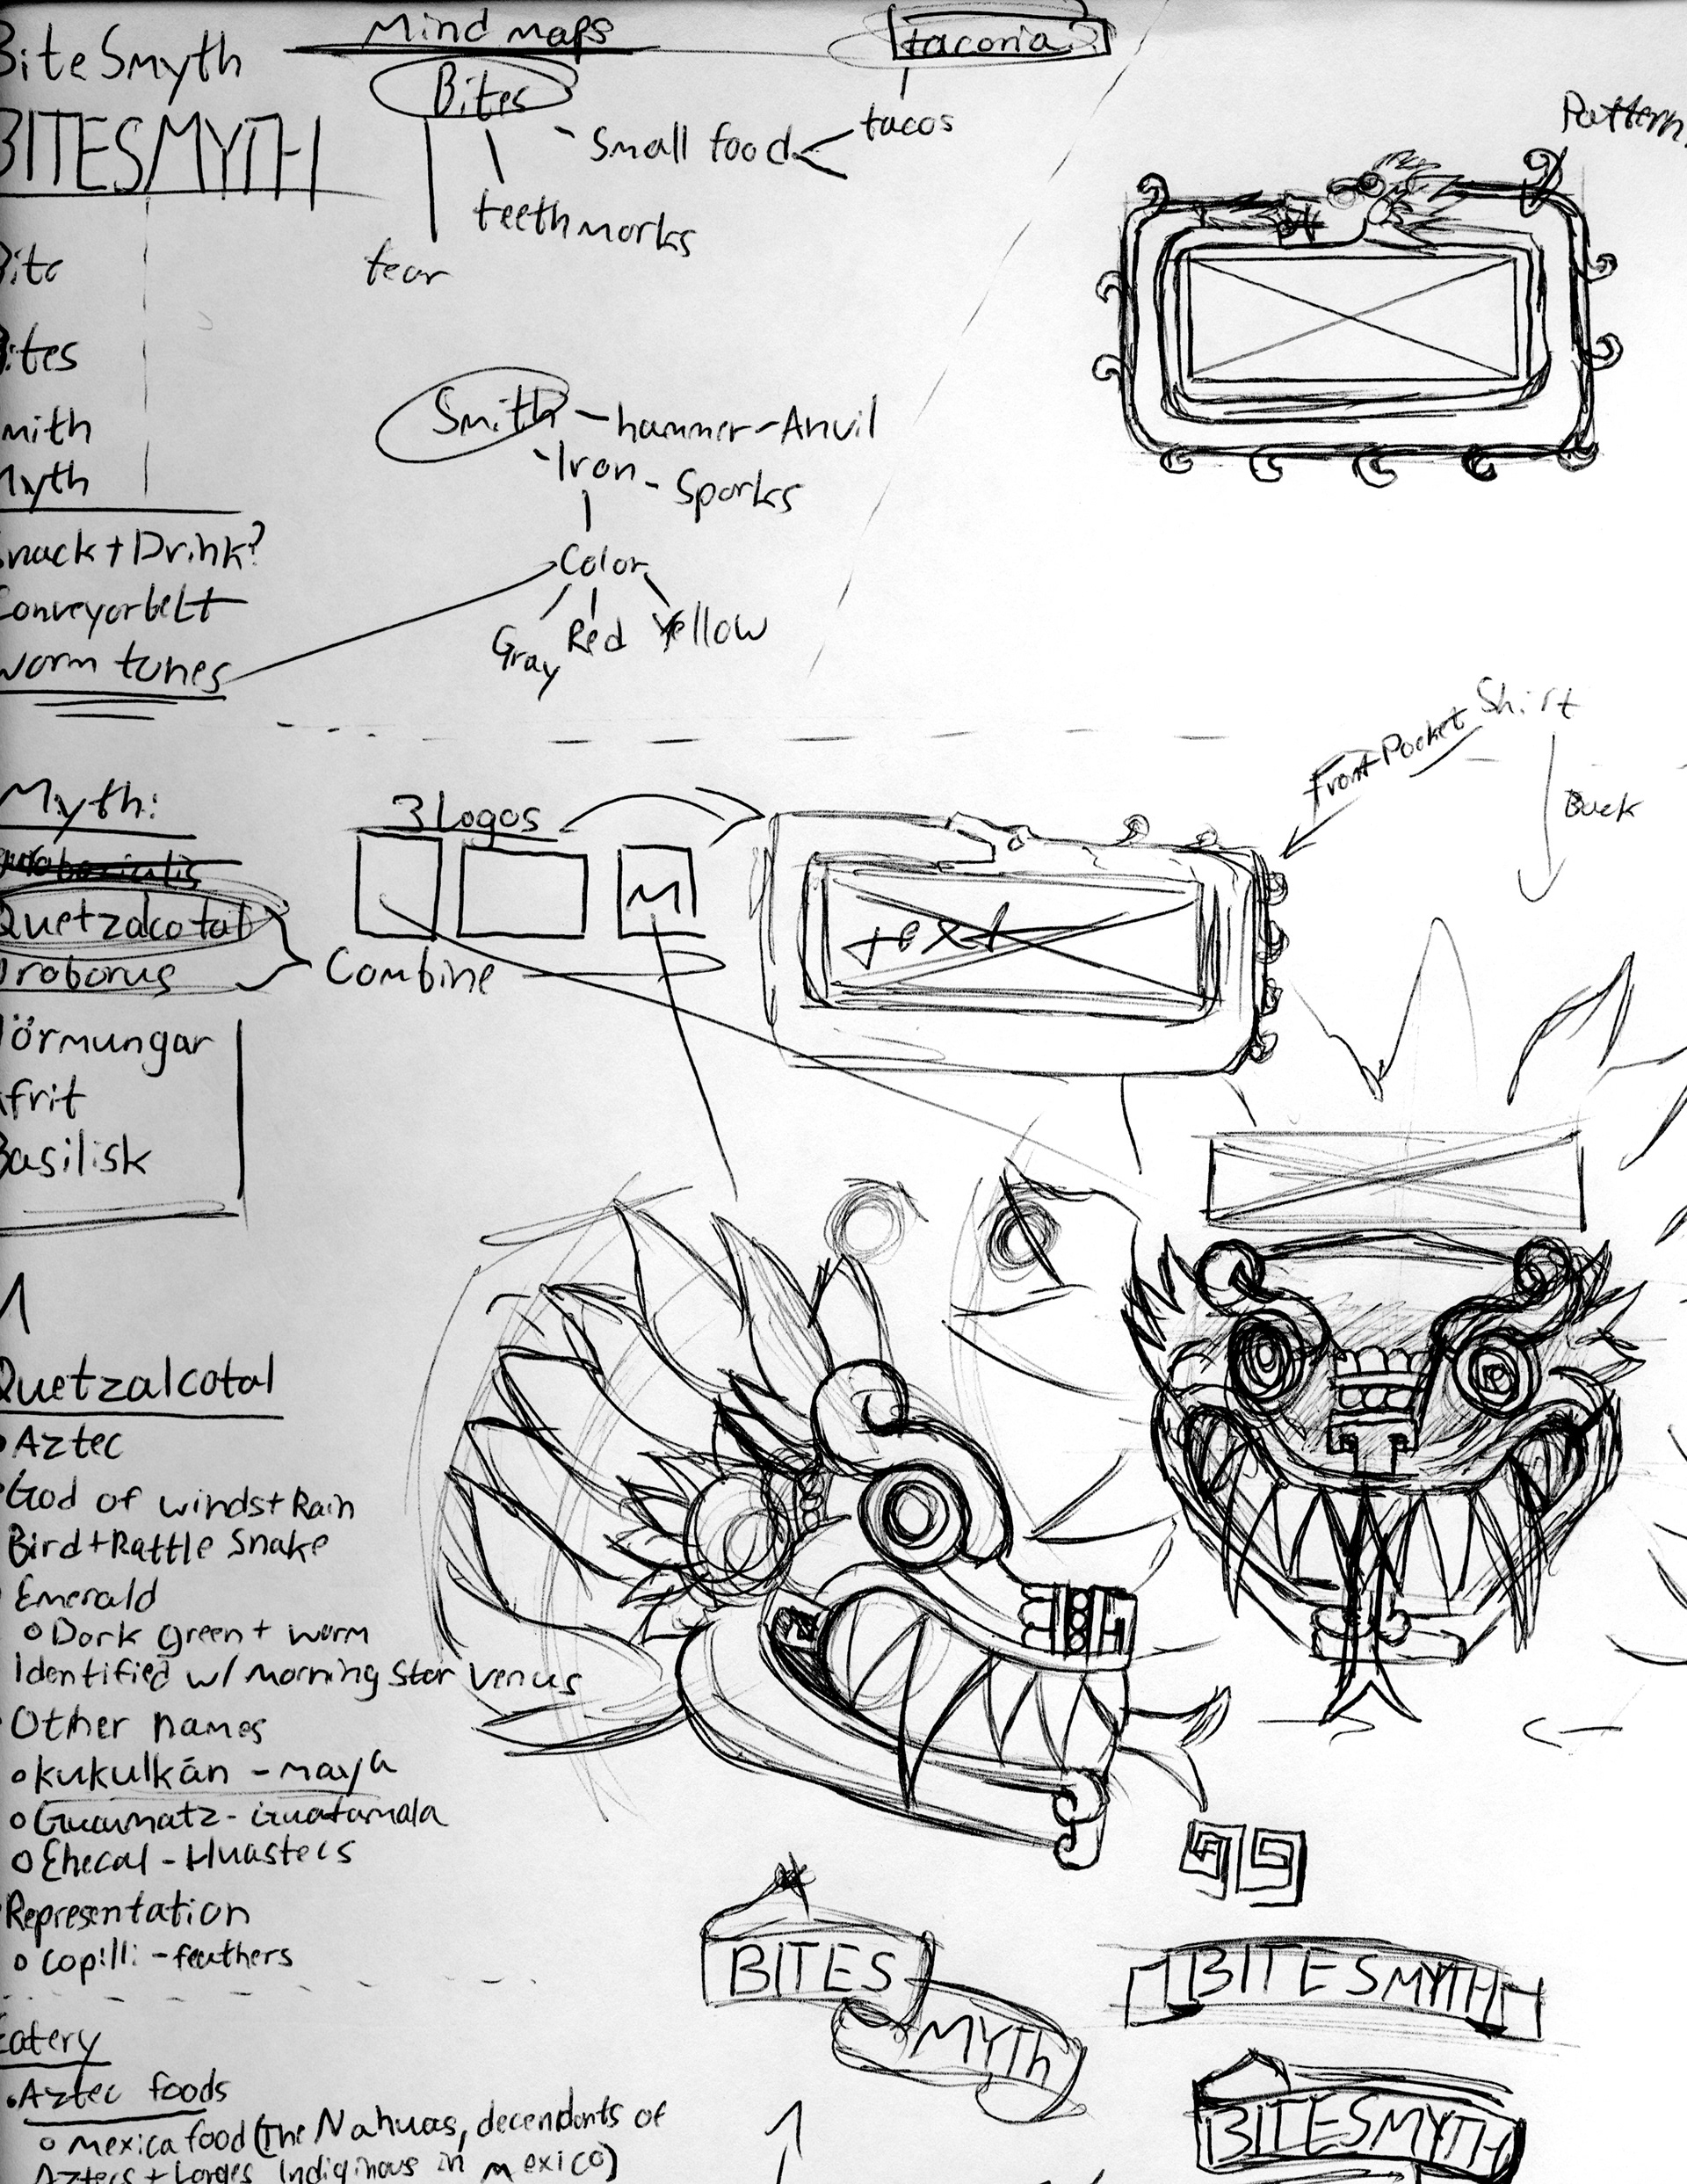 BiteSmyth
BITESMYTH
Bite
Bites
Smith
Myth
Snack + Drink?
Conveyorbelt
worm tones
Mind maps
Bites
tear
teethmarks
Small food
tacos
taconia?
Smith - hammer - Anvil
Iron - Sparks
Color
Gray Red Yellow
Pattern
Myth:
Quetzalcotal
Oroborus
Combine
Jörmungar
Ifrit
Basilisk
3 Logos
M
text
Front Pocket Shirt
Back
Quetzalcotal
Aztec
God of winds + Rain
Bird + Rattle Snake
Emerald
Dark green + worm
Identified w/ Morning Star Venus
Other names
Kukulkán - maya
Gucumatz - Guatamala
Ehecal - Huastecs
Representation
Copilli - feathers
Eatery
Aztec foods
Mexica food (The Nahuas, decendants of
Aztecs + Larges Indiginous in mexico)
BITES
MYTh
BITESMYTH
BITESMYTH